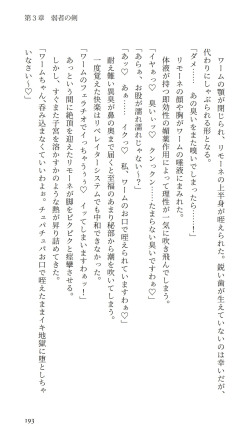 第3章　弱者の剣
　ワームの顎が閉じられ、リモーネの上半身が咥えられた。鋭い歯が生えていないのは幸いだが、
代わりにしゃぶられる形となる。
「ダメ……あの臭いをまた嗅いでしまったら……！」
　リモーネの顔や胸がワームの唾液にまみれた。
　体液が持つ即効性の媚薬作用によって理性が一気に吹き飛んでしまう。
「イヤぁっ♡　臭いぃっ♡　クンックン……たまらない臭いですわぁ♡」
「あらぁ、お股が濡れ濡れじゃない～？」
「あっ♡　あぁっ……イクっ♡　私、ワームのお口で咥えられていますわぁ♡」
　耐え難い異臭が鼻の奥まで届くと至福のあまり秘部から潮を吹いてしまう。
　一度覚えた快楽はリベレイターシステムでも中和できなかった。
「ワームのフェラチオでイっちゃうぅぅ♡　イってしまいますわぁッ！」
　あっという間に絶頂を迎えたリモーネが脚をビクビクと痙攣させる。
　しかし、すぐまた子宮を溶かすかのような熱が昇り詰めてきた。
「ワームちゃん、呑み込まなくていいわよぉ。チュパチュパお口で咥えたままイキ地獄に堕としちゃ
いなさい～♡」
193